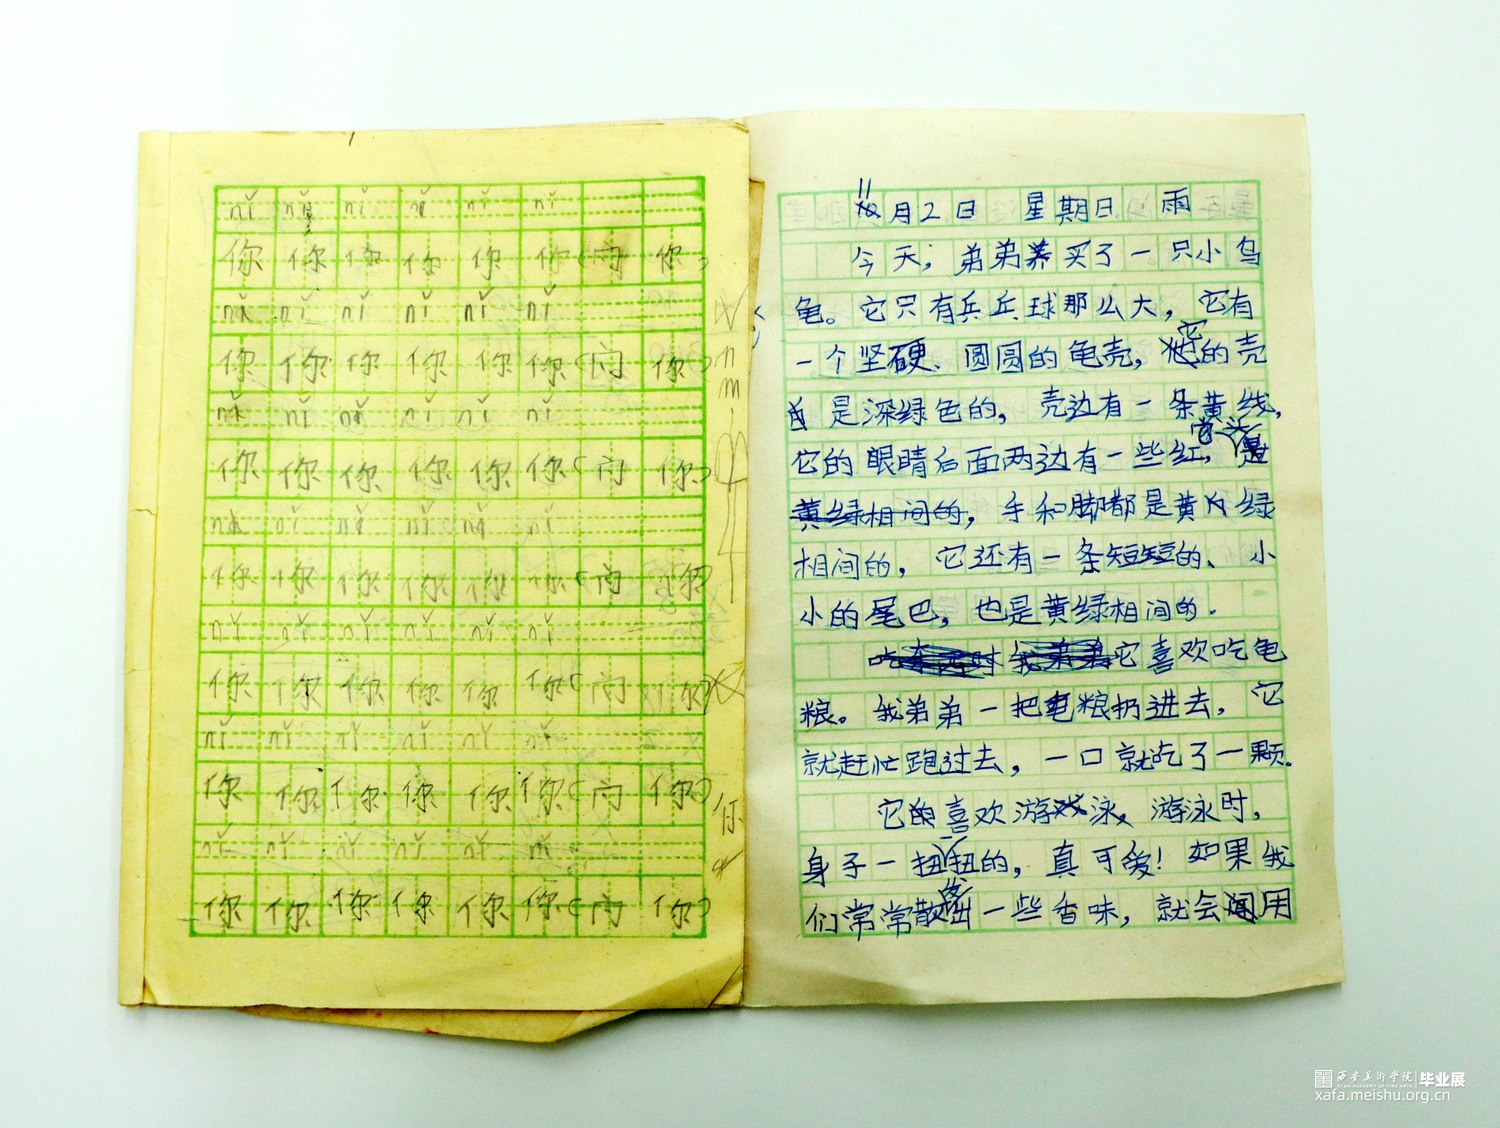 nǐ nǐ nǐ nǐ nǐ nǐ
你 你 你 你 你 你 (向 你)
nǐ nǐ nǐ nǐ nǐ nǐ
你 你 你 你 你 你 (向 你)
nǐ nǐ nǐ nǐ nǐ nǐ
你 你 你 你 你 你 (向 你)
nǐ nǐ nǐ nǐ nǐ nǐ
你 你 你 你 你 你 (向 你)
nǐ nǐ nǐ nǐ nǐ nǐ
你 你 你 你 你 你 (向 你)
nǐ nǐ nǐ nǐ nǐ nǐ
你 你 你 你 你 你 (向 你)
nǐ nǐ nǐ nǐ nǐ nǐ
你 你 你 你 你 你 (向 你)
你
11月2日 星期日 雨
今天,弟弟养买了一只小乌
龟。它只有兵乓球那么大,它有
一个坚硬、圆圆的龟壳,它的壳
是深绿色的,壳边有一条黄线,
它的眼睛后面两边有一些红,它头是
黄绿相间的,手和脚都是黄绿
相间的,它还有一条短短的、小
小的尾巴,也是黄绿相间的.
它喜欢吃龟
粮。我弟弟一把龟粮扔进去,它
就赶忙跑过去,一口就吃了一颗.
它的喜欢游泳,游泳时,
身子一扭一扭的,真可爱!如果我
们常常散发出一些香味,就会闻用
西安美术学院 毕业展
xafa.meishu.org.cn